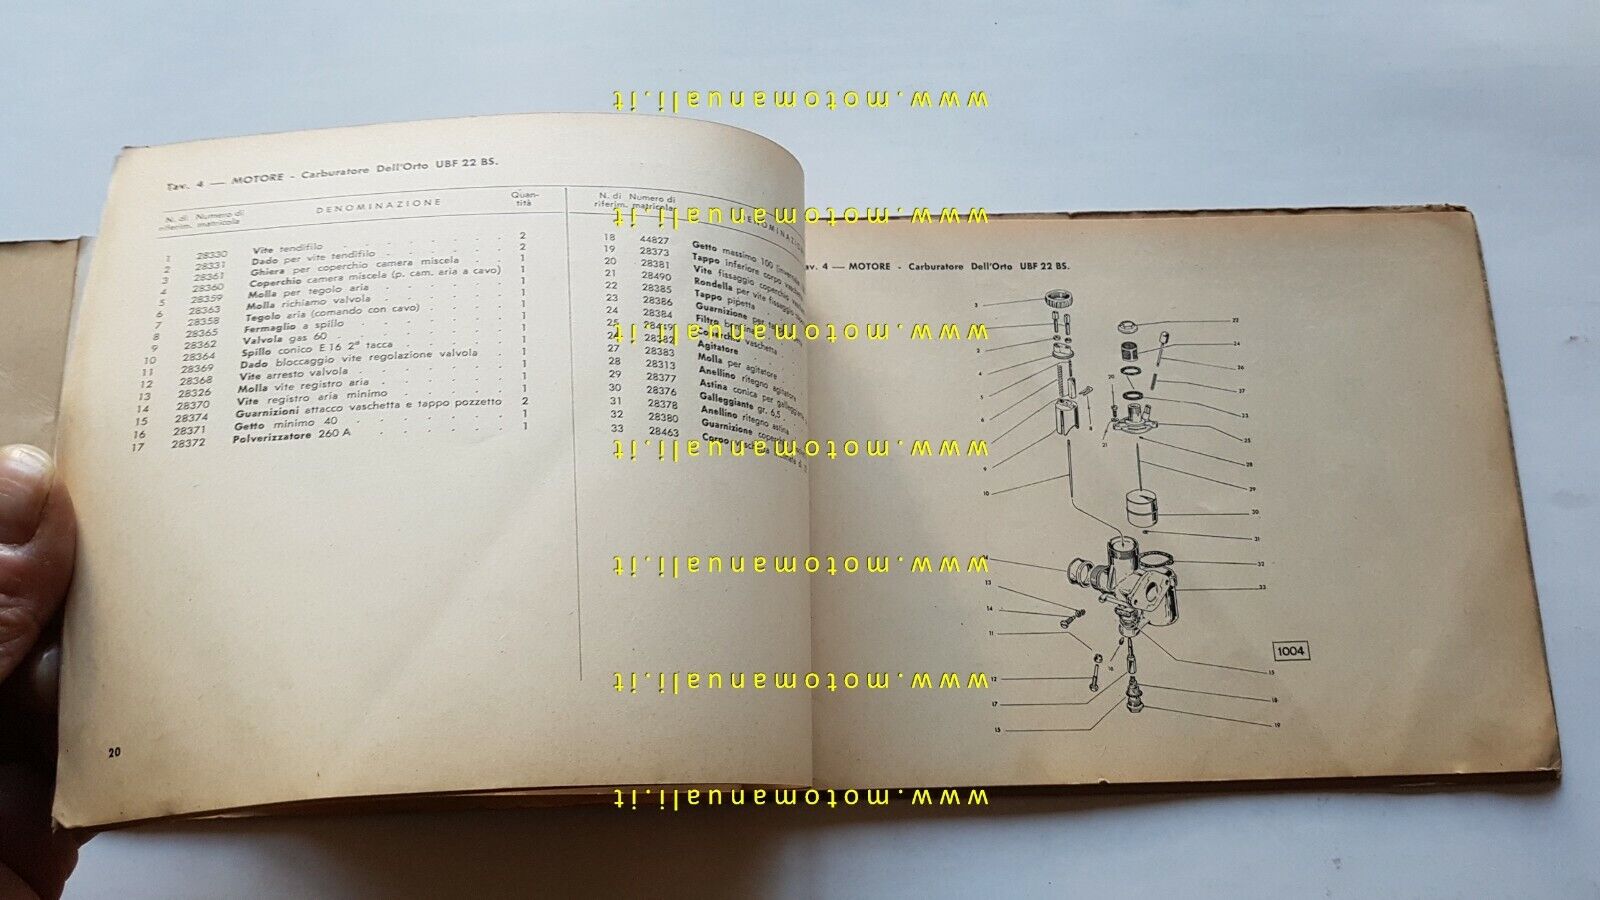 Tav. 4 — MOTORE - Carburatore Dell'Orto UBF 22 BS.
N. di riferim. Numero di matricola DENOMINAZIONE Quantità
1 28330 Vite tendifilo 2
2 28331 Dado per vite tendifilo 2
3 28361 Ghiera per coperchio camera miscela 1
4 28360 Coperchio camera miscela (p. cam. aria a cavo) 1
5 28359 Molla per tegolo aria 1
6 28363 Molla richiamo valvola 1
7 28358 Tegolo aria (comando con cavo) 1
8 28365 Fermaglio a spillo 1
9 28362 Valvola gas 60 1
10 28364 Spillo conico E 16 2ª tacca 1
11 28369 Dado bloccaggio vite regolazione valvola 1
12 28368 Vite arresto valvola 1
13 28326 Molla vite registro aria 1
14 28370 Vite registro aria minimo 1
15 28374 Guarnizioni attacco vaschetta e tappo pozzetto 2
16 28371 Getto minimo 40 1
17 28372 Polverizzatore 260 A 1
N. di riferim. Numero di matricola DENOMINAZ
18 44827 Getto massimo 100
19 28373 Tappo inferiore corpo
20 28381 Vite fissaggio coperchio
21 28490 Rondella per vite fissaggio
22 28385 Tappo pipetta
23 28386 Guarnizione per
24 28384 Filtro
25 28449 Coperchio vaschetta
26 28382 Agitatore
27 28383 Molla per agitatore
28 28313 Anellino ritegno agitatore
29 28377 Astina conica per galleggiante
30 28376 Galleggiante gr. 6,5
31 28378 Anellino ritegno astina
32 28380 Guarnizione
33 28463 Corpo
20
Tav. 4 — MOTORE - Carburatore Dell'Orto UBF 22 BS.
3
22
24
2
26
4
20
27
5
23
6
21
25
9
28
10
29
30
31
32
13
33
14
11
16
12
15
17
18
15
19
1004
www.motomanuali.it
www.motomanuali.it
www.motomanuali.it
www.motomanuali.it
www.motomanuali.it
www.motomanuali.it
www.motomanuali.it